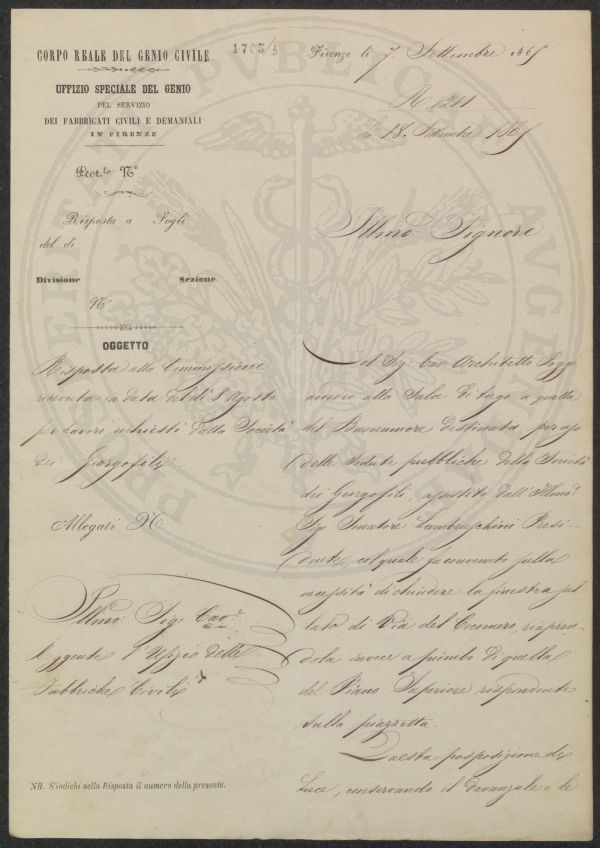 CORPO REALE DEL GENIO CIVILE
UFFIZIO SPECIALE DEL GENIO
PEL SERVIZIO
DEI FABBRICATI CIVILI E DEMANIALI
IN FIRENZE
Prot.lo N.o
Risposta a Fogli
del dì
Divisione Sezione
N.
OGGETTO
Risposta alla Commissione
ricevuta in data del dì 8 Agosto
per lavori richiesti dalla Società
dei Georgofili
Allegati N.
Illmo: Sig: Cav:
Reggente l'Ufizio delle
Fabbriche Civili
NB. S'indichi nella Risposta il numero della presente.
1703/3
Firenze li 7. Settembre 1865
1211
li 18. Settembre 1865
Illmo Signore
Col Sig: Cav: Architetto Poggi
alla Sala di faro a quella
del Buonumore destinata per uso
delle Sedute pubbliche della Società
dei Georgofili, assistito dall'Illmo:
Sig: Senatore Lambruschini Presi-
dente, col quale fu convenuto sulla
necessità di chiudere la finestra sul
lato di Via del Cocomero riapren-
dola invece a piombo di quella
del Piano Superiore rispondente
sulla piazzetta.
Questa posposizione di
Luce, conservando il davanzale e le
PVBLICAE
AVGENDAE